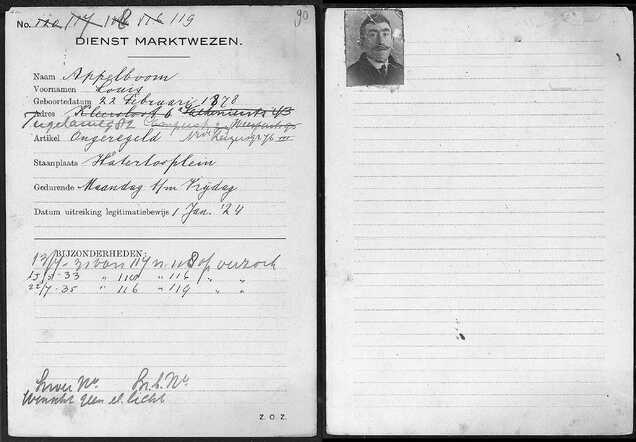 No. 120 117 118 116 119
90
DIENST MARKTWEZEN.
Naam Appelboom
Voornamen Louis
Geboortedatum 22 Februari 1878
Adres
Artikel Ongeregeld
Staanplaats Waterlooplein
Gedurende Maandag t/m Vrijdag
Datum uitreiking legitimatiebewijs 1 Jan. '24
BIJZONDERHEDEN:
van 117 n. 118 op verzoek
15/ -33 " 118 " 116 " "
22/7-35 " 116 " 119 " "
Wenscht geen el. licht
Z.O.Z.